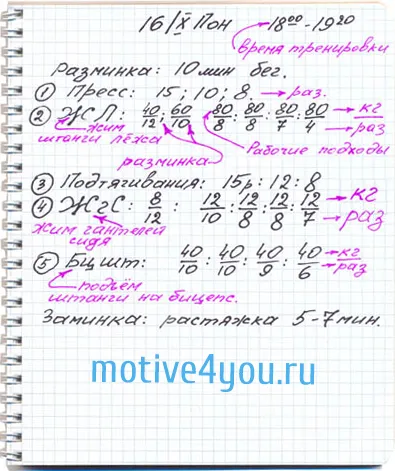 16/X Пон 18⁰⁰-19²⁰
время тренировки
Разминка: 10 мин бег.
① Пресс: 15; 10; 8. → раз.
② ЖЛ: 40/12; 60/10; 80/8: 80/8: 80/7: 80/4 → кг/раз
жим штанги лёжа
разминка
Рабочие подходы
③ Подтягивания: 15р: 12: 8
④ ЖгС: 8/12 12/10: 12/8: 12/8: 12/7 → кг/раз
жим гантелей сидя
⑤ Бц шт: 40/10: 40/10: 40/9: 40/6 → кг/раз
подъём штанги на бицепс.
Заминка: растяжка 5-7 мин.
motive4you.ru